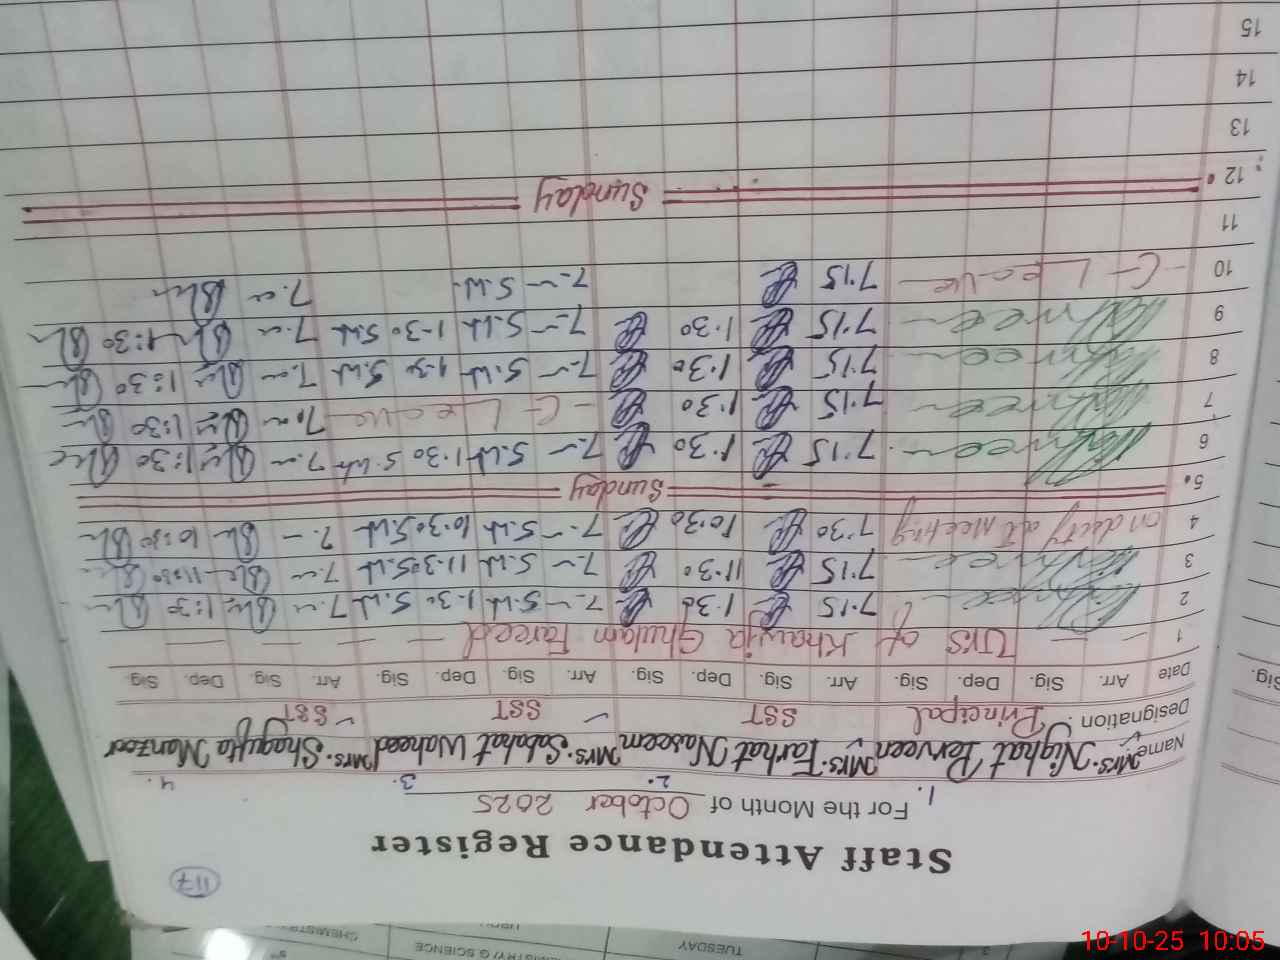 117
Staff Attendance Register
For the Month of October 2025
1. 2. 3. 4.
Name Mrs. Nighat Perveen Mrs. Farhat Naseem Mrs. Sabahat Waheed Mrs. Shagufta Manzoor
Designation Principal SST SST SST
Date Arr. Sig. Dep. Sig. Arr. Sig. Dep. Sig. Arr. Sig. Dep. Sig. Arr. Sig. Dep. Sig.
1 URS of Khawja Ghulam Fareed
2 7.15 1.30 7.— S.W 1.30 S.W 7.— 1:30
3 7.15 11.30 7.— S.W 11.30 S.W 7.— 11:30
4 on duty at Meeting 7.30 10.30 7.— S.W 10.30 S.W 7.— 10:30
5. Sunday
6 7.15 1.30 7.— S.W 1.30 S.W 7.— 1:30
7 7.15 1.30 C-Leave 7.— 1:30
8 7.15 1.30 7.— S.W 1.30 S.W 7.— 1:30
9 7.15 1.30 7.— S.W 1.30 S.W 7.— 1:30
10 C-Leave 7.15 7.— S.W. 7.—
11
12 Sunday
13
14
15
Sig.
TUESDAY
10-10-25 10:05